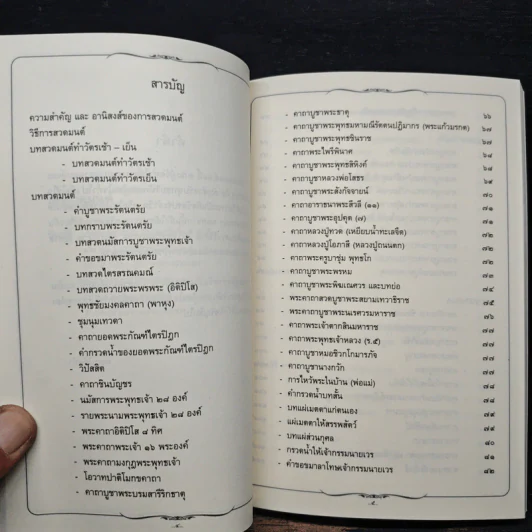 สารบัญ
ความสำคัญ และ อานิสงส์ของการสวดมนต์
วิธีการสวดมนต์
บทสวดมนต์ทำวัตรเช้า – เย็น
- บทสวดมนต์ทำวัตรเช้า
- บทสวดมนต์ทำวัตรเย็น
บทสวดมนต์
- คำบูชาพระรัตนตรัย
- บทกราบพระรัตนตรัย
- บทสวดนมัสการบูชาพระพุทธเจ้า
- คำขอขมาพระรัตนตรัย
- บทสวดไตรสรณคมณ์
- บทสวดถวายพระพรพระ (อิติปิโส)
- พุทธชัยมงคลคาถา (พาหุง)
- ชุมนุมเทวดา
- คาถายอดพระกัณฑ์ไตรปิฎก
- คำกรวดน้ำของยอดพระกัณฑ์ไตรปิฎก
- วิปัสสิต
- คาถาชินบัญชร
- นมัสการพระพุทธเจ้า ๒๘ องค์
- รายพระนามพระพุทธเจ้า ๒๘ องค์
- พระคาถาอิติปิโส ๘ ทิศ
- พระคาถาพระเจ้า ๑๖ พระองค์
- พระคาถามงกุฎพระพุทธเจ้า
- โอวาทปาติโมกขคาถา
- คาถาบูชาพระบรมสารีริกธาตุ
- คาถาบูชาพระธาตุ ๖๖
- คาถาบูชาพระพุทธมหามณีรัตนปฏิมากร (พระแก้วมรกต) ๖๗
- คาถาบูชาพระพุทธชินราช ๖๗
- คาถาพระไพรีพินาศ ๖๘
- คาถาบูชาพระพุทธสิหิงค์ ๖๘
- คาถาบูชาหลวงพ่อโสธร ๖๙
- คาถาบูชาพระสังกัจจายน์ ๗๐
- คาถาอาราธนาพระสีวลี (๑๑) ๗๑
- คาถาบูชาพระอุปคุต (๗) ๗๑
- คาถาหลวงปู่ทวด (เหยียบน้ำทะเลจืด) ๗๒
- คาถาหลวงปู่โอภาสี (หลวงปู่ถนนตก) ๗๒
- คาถาพระครูบาชุ่ม พุทธโก ๗๒
- คาถาบูชาพระพรหม ๗๓
- คาถาบูชาพระพิฆเณศวร และบทย่อ ๗๔
- พระคาถาสวดบูชาพระสยามเทวาธิราช ๗๕
- พระคาถาบูชาพระนเรศวรมหาราช ๗๖
- คาถาพระเจ้าตากสินมหาราช ๗๗
- คาถาพระพุทธเจ้าหลวง (ร.๕) ๗๗
- คาถาบูชาหมอชีวกโกมารภัจ ๗๗
- คาถาบูชานางกวัก ๗๗
- การไหว้พระในบ้าน (พ่อแม่) ๗๘
- คำกรวดน้ำบทสั้น ๗๘
- บทแผ่เมตตาแก่ตนเอง ๗๙
- แผ่เมตตาให้สรรพสัตว์ ๗๙
- บทแผ่ส่วนกุศล ๘๐
- กรวดน้ำให้เจ้ากรรมนายเวร ๘๑
- คำขอขมาลาโทษเจ้ากรรมนายเวร ๘๒